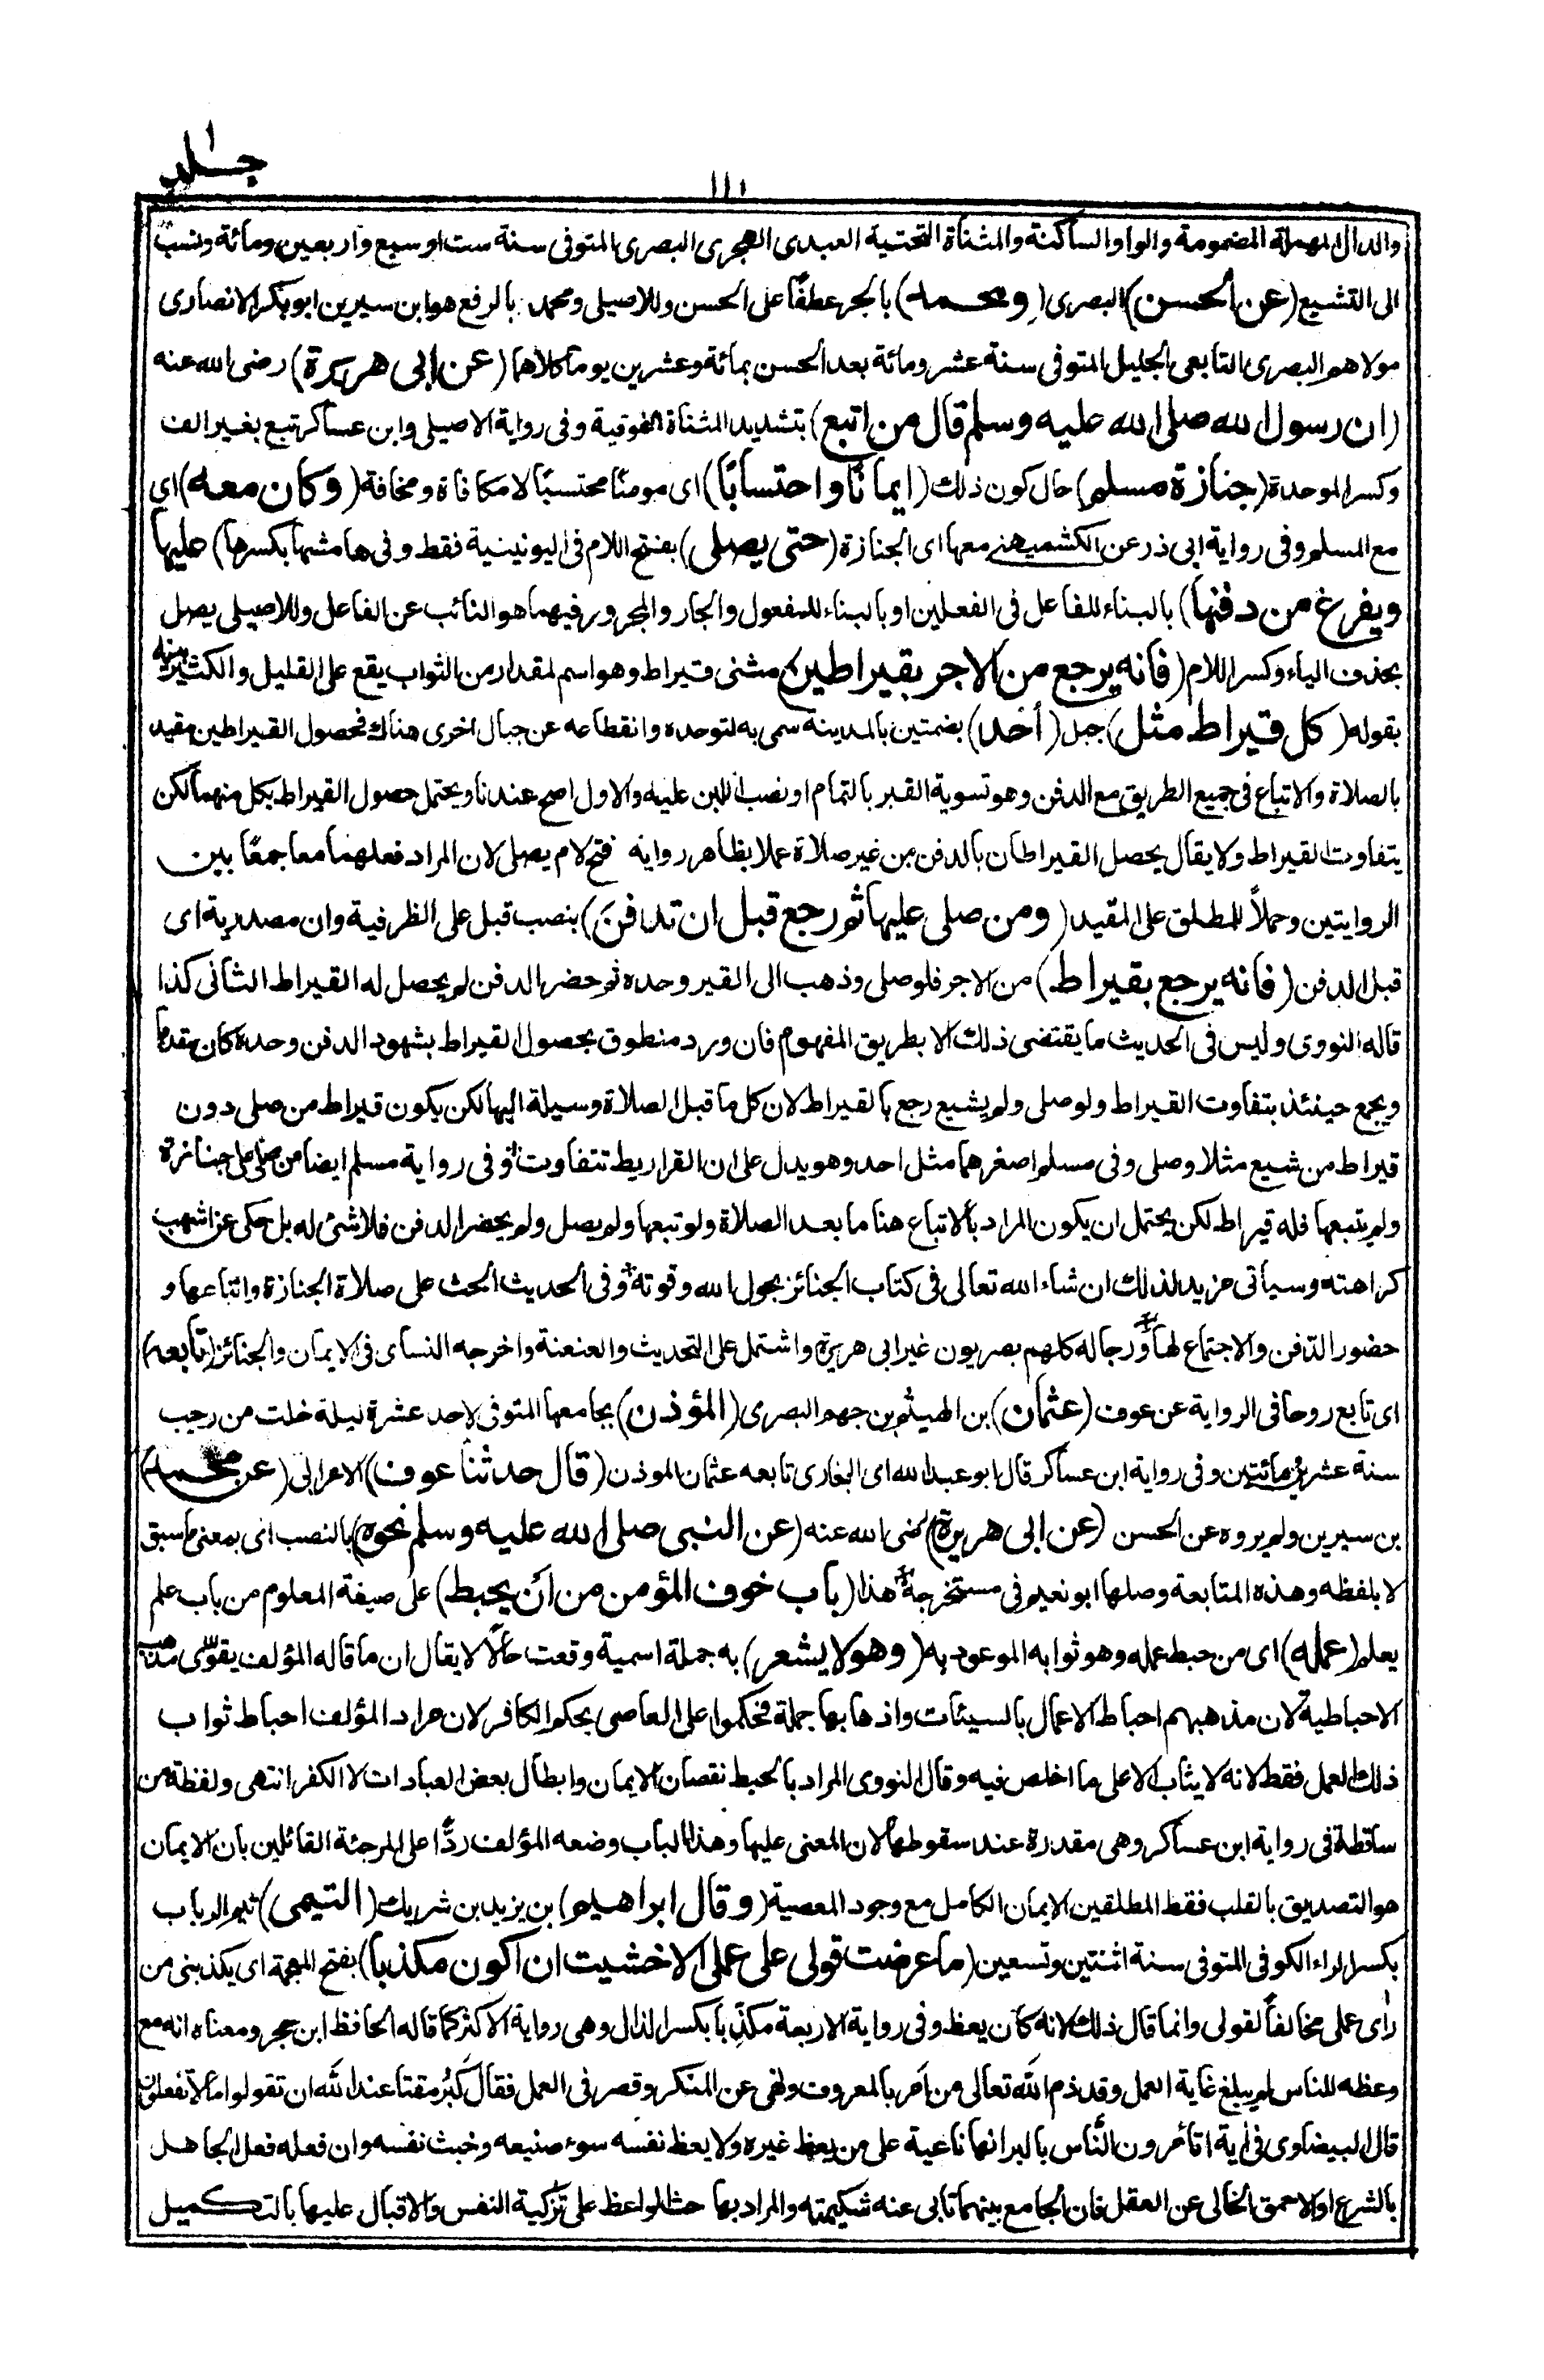 جلد ١
١١١
والدال المهملة المضمومة والواو الساكنة والمثناة التحتية العبدى الهجرى البصرى المتوفى سنة ست او سبع واربعين ومائة ونسب
الى التشيع (عن الحسن) البصرى (ومحمد) بالجر عطفًا على الحسن وللاصيلى ومحمد بالرفع هو ابن سيرين ابو بكر الانصارى
مولاهم البصرى التابعى الجليل المتوفى سنة عشر ومائة بعد الحسن بمائة وعشرين يوما كلاهما (عن ابى هريرة) رضى الله عنه
(ان رسول الله صلى الله عليه وسلم قال من اتبع) بتشديد المثناة الفوقية وفى رواية الاصيلى وابن عساكر تبع بغير الف
وكسر الموحدة (جنازة مسلم) حال كون ذلك (ايمانًا واحتسابًا) اى مومنًا محتسبًا لا مكافاة ومخافة (وكان معه) اى
مع المسلم وفى رواية ابى ذر عن الكشميهنى معها اى الجنازة (حتى يصلى) بفتح اللام فى اليونينية فقط وفى هامشها بكسرها) عليها
ويفرغ من دفنها) بالبناء للفاعل فى الفعلين او بالبناء للمفعول والجار والمجرور فيهما هو النائب عن الفاعل وللاصيلى يصل
بحذف الياء وكسر اللام (فانه يرجع من الاجر بقيراطين) مثنى قيراط وهو اسم لمقدار من الثواب يقع على القليل والكثير بينه
بقوله (كل قيراط مثل) جبل (أحد) بضمتين بالمدينة سمى به لتوحده وانقطاعه عن جبال اخرى هناك فحصول القيراطين مقيد
بالصلاة والاتباع فى جميع الطريق مع الدفن وهو تسوية القبر بالتمام او نصب اللبن عليه والاول اصح عندنا ويحتمل حصول القيراط بكل منهما لكن
يتفاوت القيراط ولا يقال يحصل القيراطان بالدفن من غير صلاة عملا بظاهر رواية فتح لام يصلى لان المراد فعلهما معا جمعًا بين
الروايتين وحملاً للمطلق على المقيد (ومن صلى عليها ثم رجع قبل ان تدفنَ) بنصب قبل على الظرفية وان مصدرية اى
قبل الدفن (فانه يرجع بقيراط) من الاجر فلو صلى وذهب الى القبر وحده ثم حضر الدفن لم يحصل له القيراط الثانى كذا
قاله النووى وليس فى الحديث ما يقتضى ذلك الا بطريق المفهوم فان ورد منطوق بحصول القيراط بشهود الدفن وحده كان مقدما
ويجمع حينئذ بتفاوت القيراط ولو صلى ولم يشيع رجع بالقيراط لان كل ما قبل الصلاة وسيلة اليها لكن يكون قيراط من صلى دون
قيراط من شيع مثلا وصلى وفى مسلم اصغرهما مثل احد وهو يدل على ان القراريط تتفاوت وفى رواية مسلم ايضا من صلى على جنازة
ولم يتبعها فله قيراط لكن يحتمل ان يكون المراد بالاتباع هنا ما بعد الصلاة ولو تبعها ولم يصل ولم يحضر الدفن فلا شئ له بل حكى عن اشهب
كراهته وسياتى مزيد لذلك ان شاء الله تعالى فى كتاب الجنائز بحول الله وقوته وفى الحديث الحث على صلاة الجنازة واتباعها و
حضور الدّفن والاجتماع لها ورجاله كلهم بصريون غير ابى هريرة واشتمل على التحديث والعنعنة واخرجه النساى فى الايمان والجنائز (تابعه)
اى تابع روحا فى الرواية عن عوف (عثمان) بن الهيثم بن جهم البصرى (المؤذن) بجامعها المتوفى لاحد عشرة ليلة خلت من رجب
سنة عشرين ومائتين وفى رواية ابن عساكر قال ابو عبد الله اى البخارى تابعه عثمان الموذن (قال حدثنا عوف) الاعرابى (عن محمد)
بن سيرين ولم يروه عن الحسن (عن ابى هريرة) رضى الله عنه (عن النبى صلى الله عليه وسلم نحوه) بالنصب اى بمعنى ما سبق
لا بلفظه وهذه المتابعة وصلها ابو نعيم فى مستخرجه هذا (باب خوف المؤمن من ان يحبط) على صيغة المعلوم من باب علم
يعلم (عمله) اى من حبط عمله وهو ثوابه الموعود به (وهو لا يشعر) به جملة اسمية وقعت حالًا لا يقال ان ما قاله المؤلف يقوّى مذهب
الاحباطية لان مذهبهم احباط الاعمال بالسيئات واذهابها جملة فحكموا على العاصى بحكم الكافر لان مراد المؤلف احباط ثواب
ذلك العمل فقط لانه لا يثاب الا على ما اخلص فيه وقال النووى المراد بالحبط نقصان الايمان وابطال بعض العبادات لا الكفر انتهى ولفظة من
ساقطة فى رواية ابن عساكر وهى مقدرة عند سقوطها لان المعنى عليها وهذا الباب وضعه المؤلف ردًّا على المرجئة القائلين بان الايمان
هو التصديق بالقلب فقط المطلقين الايمان الكامل مع وجود المعصية (وقال ابراهيم) بن يزيد بن شريك (التيمى) تيم الرباب
بكسر الراء الكوفى المتوفى سنة اثنتين وتسعين (ما عرضت قولى على عملى الا خشيت ان اكون مكذبا) بفتح المعجمة اى يكذبنى من
راٰى عملى مخالفًا لقولى وانما قال ذلك لانه كان يعظ وفى رواية الاربعة مكذِّبا بكسر الذال وهى رواية الاكثر كما قاله الحافظ ابن حجر ومعناه انه مع
وعظه للناس لم يبلغ غاية العمل وقد ذم الله تعالى من اَمر بالمعروف ونهى عن المنكر وقصر فى العمل فقال كَبُر مقتا عند الله ان تقولوا ما لا تفعلون
قال البيضاوى فى اٰية اتأمرون النَّاس بالبر انها ناعية على من يعظ غيره ولا يعظ نفسه سوء صنيعه وخبث نفسه وان فعله فعل الجاهل
بالشرع او الاحمق الخالى عن العقل فان الجامع بينهما تابى عنه شكيمته والمراد بها حث الواعظ على تزكية النفس والاقبال عليها بالتكميل